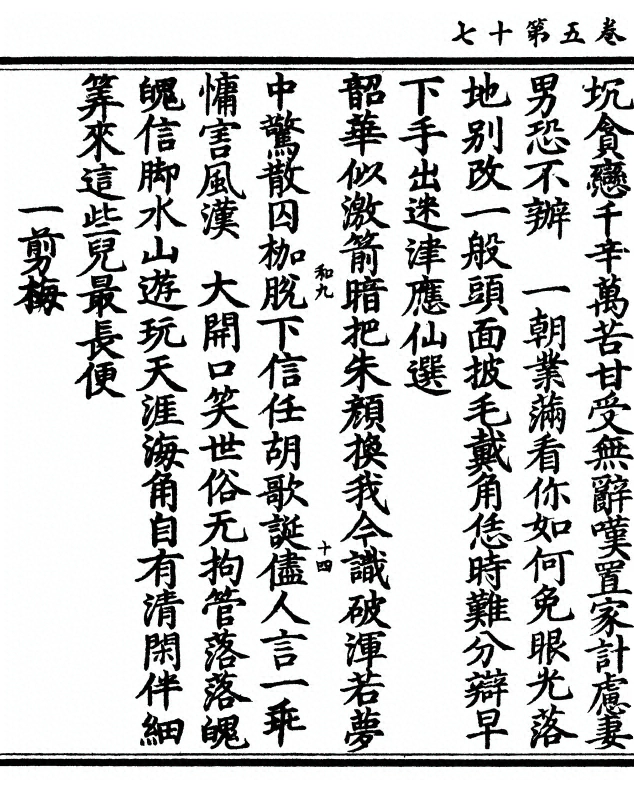 卷五第十七
坑貪戀千辛萬苦甘受無辭嘆置家計慮妻
男恐不辦　一朝業滿看你如何免眼光落
地别改一般頭面披毛戴角恁時難分辯早
下手出迷津應仙選
韶華似激箭暗把朱顔換我今識破渾若夢
和九
十四
中驚散囚枷脫下信任胡歌誕儘人言一乖
慵害風漢　大開口笑世俗无拘管落落魄
魄信脚水山遊玩天涯海角自有清閑伴細
筭來這些兒最長便
一剪梅